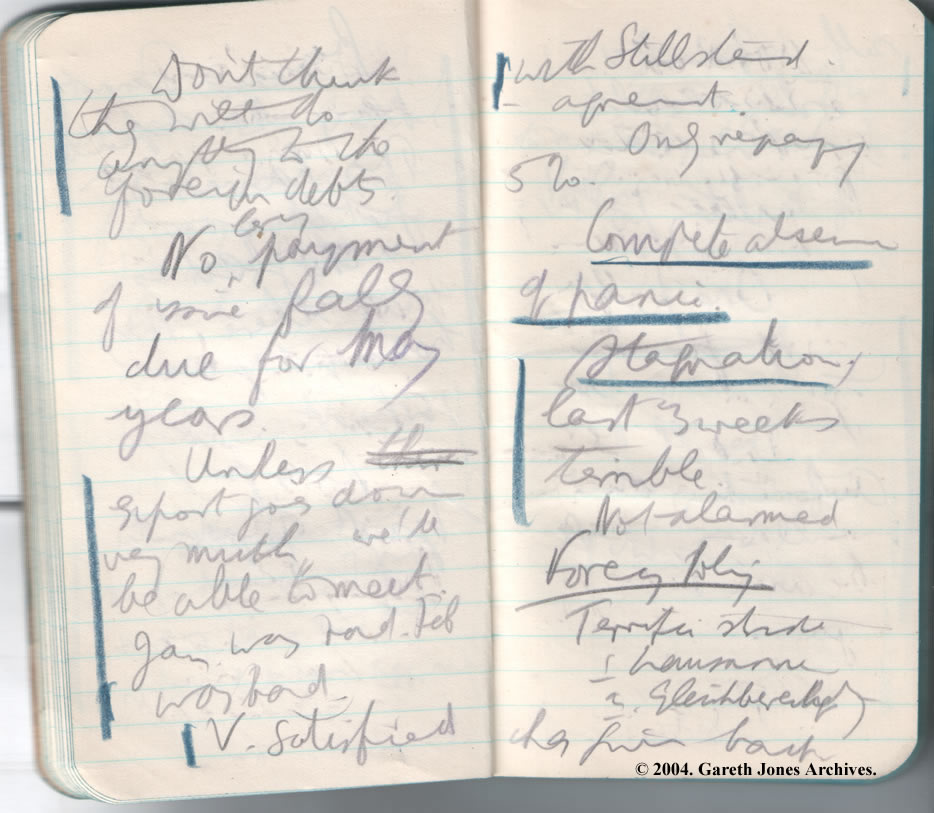 Don't think
they will do
anything to the
foreign debts.
No long payment
of falls
due for many
years.
Unless
export goes down
very much, we'll
be able to meet.
Jan. was bad. Feb
was bad.
V. satisfied
with Stillstand.
agreemt.
Only repay
5%.
Complete absence
of panic.
Stagnation,
last 3 weeks
terrible.
Not alarmed.
Foreign Policy
Terrific
Lausanne
Gleichberechtg
has back
© 2004. Gareth Jones Archives.